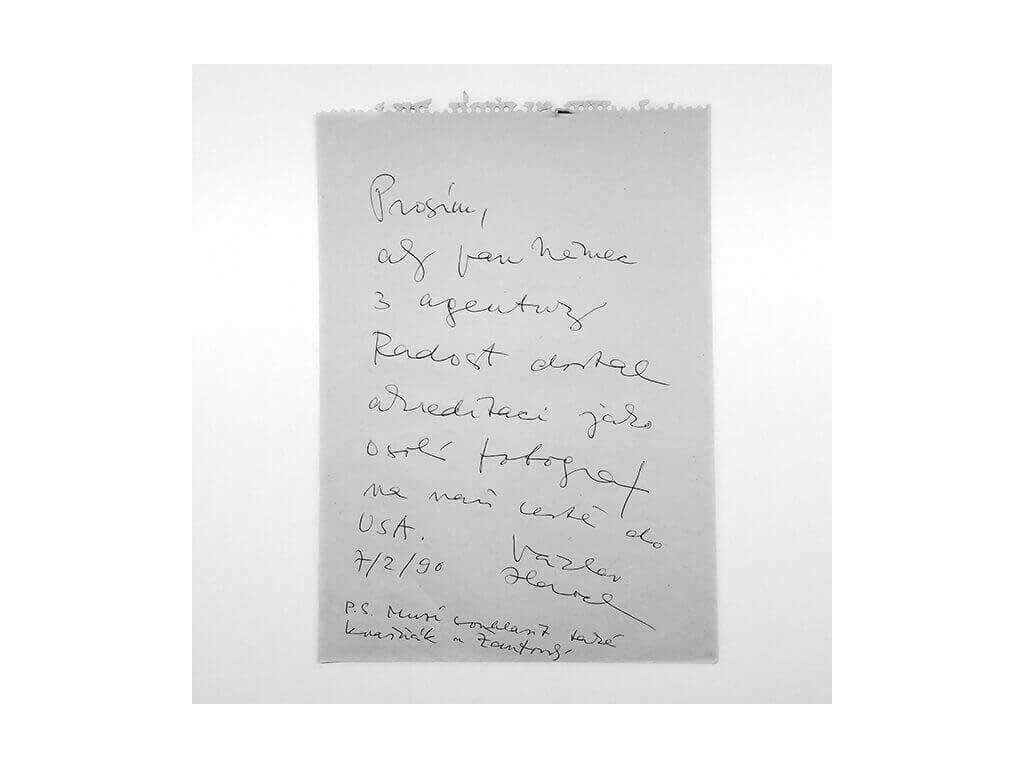 Prosím,
aby pan Němec
z agentury
Radost dostal
akreditaci jako
osobní fotograf
na naší cestě do
USA.
Václav
7/2/90
Havel
P.S. Musí souhlasit také
Kvašňák a Žantovský